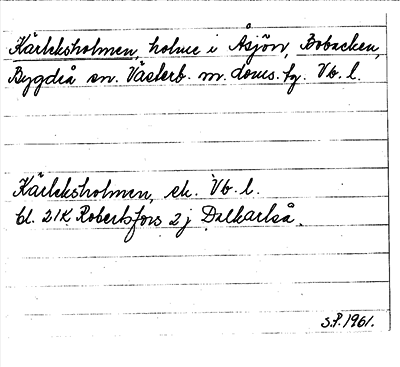 Kärleksholmen, holme i Åsjön, Bobacken,
Bygdeå sn. Västerb. m. doms.fg. Vb. l.
Kärleksholmen, ek. Vb. l.
bl. 21K Robertsfors 2 j Dalkarlså.
S.P. 1961.